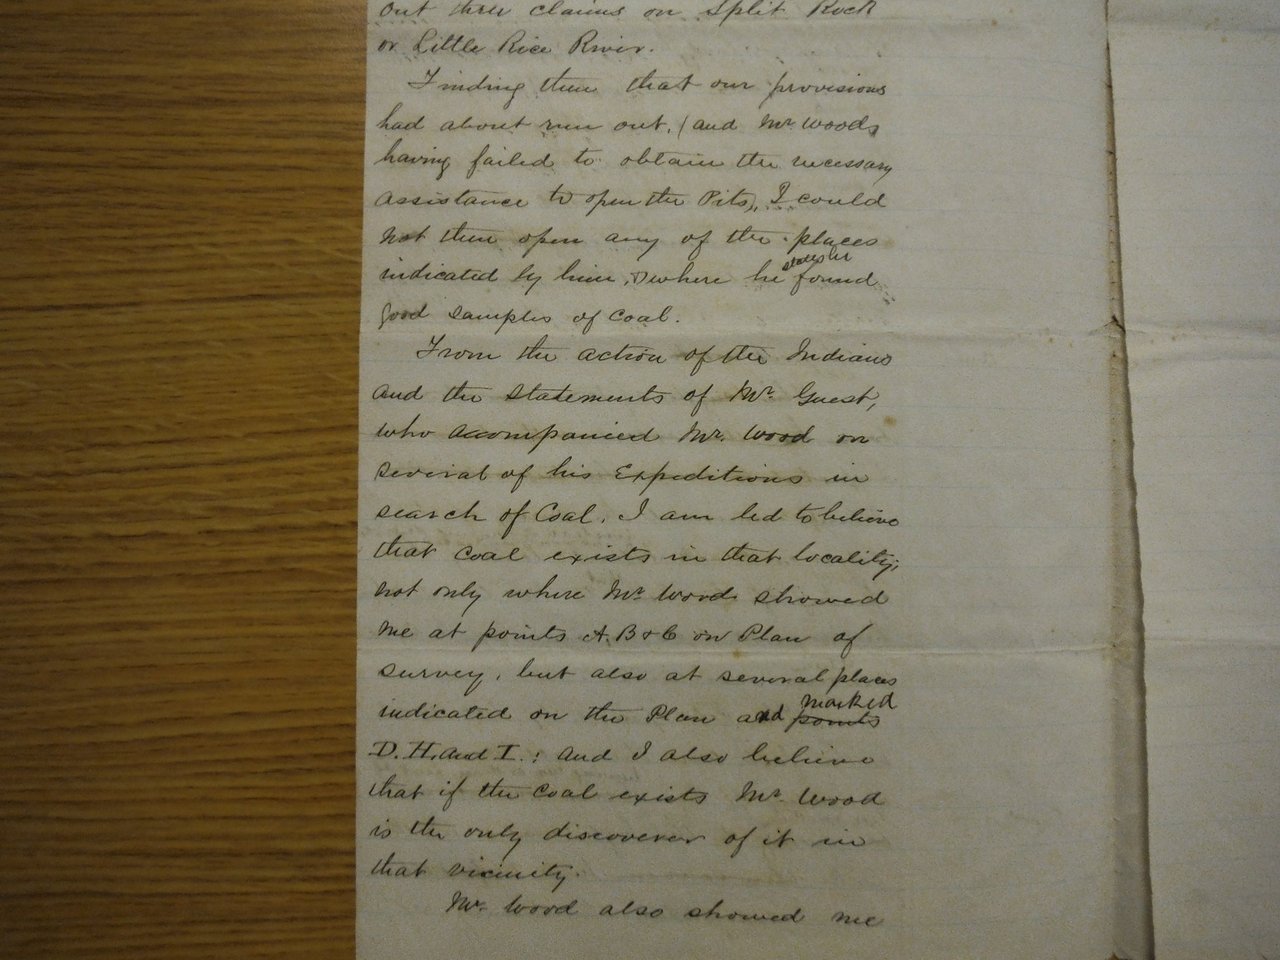 out three claims on Split Rock
or Little Rice River.
Finding then that our provisions
had about run out, (and Mr Woods
having failed to obtain the necessary
assistance to open the Pits), I could
not then open any of the places
indicated by him, & where he states he found
good samples of Coal.
From the action of the Indians
and the statements of Mr. Guest,
who accompanied Mr. Wood on
several of his Expeditions in
search of Coal, I am led to believe
that coal exists in that locality;
not only where Mr Wood showed
me at points A. B & C on Plan of
survey, but also at several places
indicated on the Plan and points marked
D. H. and I.; and I also believe
that if the coal exists Mr. Wood
is the only discoverer of it in
that vicinity.
Mr. Wood also showed me